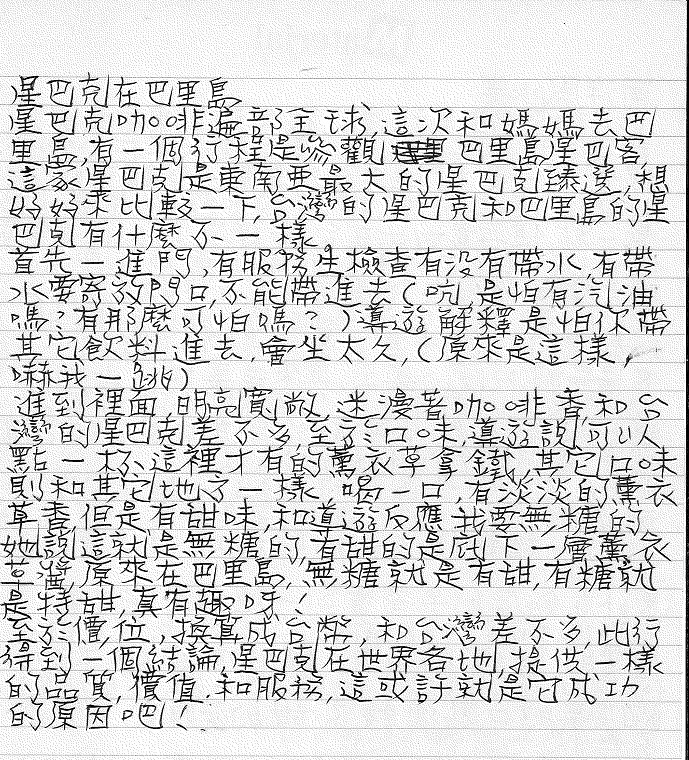 星巴克在巴里島
星巴克咖啡遍部全球,這次和媽媽去巴
里島,有一個行程是參觀巴里島星巴客,
這家星巴克是東南亞最大的星巴克臻選,想
好好來比較一下,台灣的星巴克和巴里島的星
巴克有什麼不一樣。
首先一進門,有服務生檢查有没有帶水,有帶
水要寄放門口,不能帶進去(吭,是怕有汽油
嗎?有那麼可怕嗎?)導遊解釋是怕你帶
其它飲料進去,會坐太久,(原來是這樣,
嚇我一跳)
進到裡面,明亮寬敞,迷漫著咖啡香,和台
灣的星巴克差不多,至於口味,導遊說可以
點一杯這裡才有的薰衣草拿鐵,其它口味
則和其它地方一樣,喝一口,有淡淡的薰衣
草香,但是有甜味,和導遊反應我要無糖的,
她說這就是無糖的,有甜的是底下一層薰衣
草醬,原來在巴里島,無糖就是有甜,有糖就
是特甜,真有趣呀!
至於價位,換算成台幣,和台灣差不多,此行
得到一個結論,星巴克在世界各地,提供一樣
的品質,價值,和服務,這或許就是它成功
的原因吧!